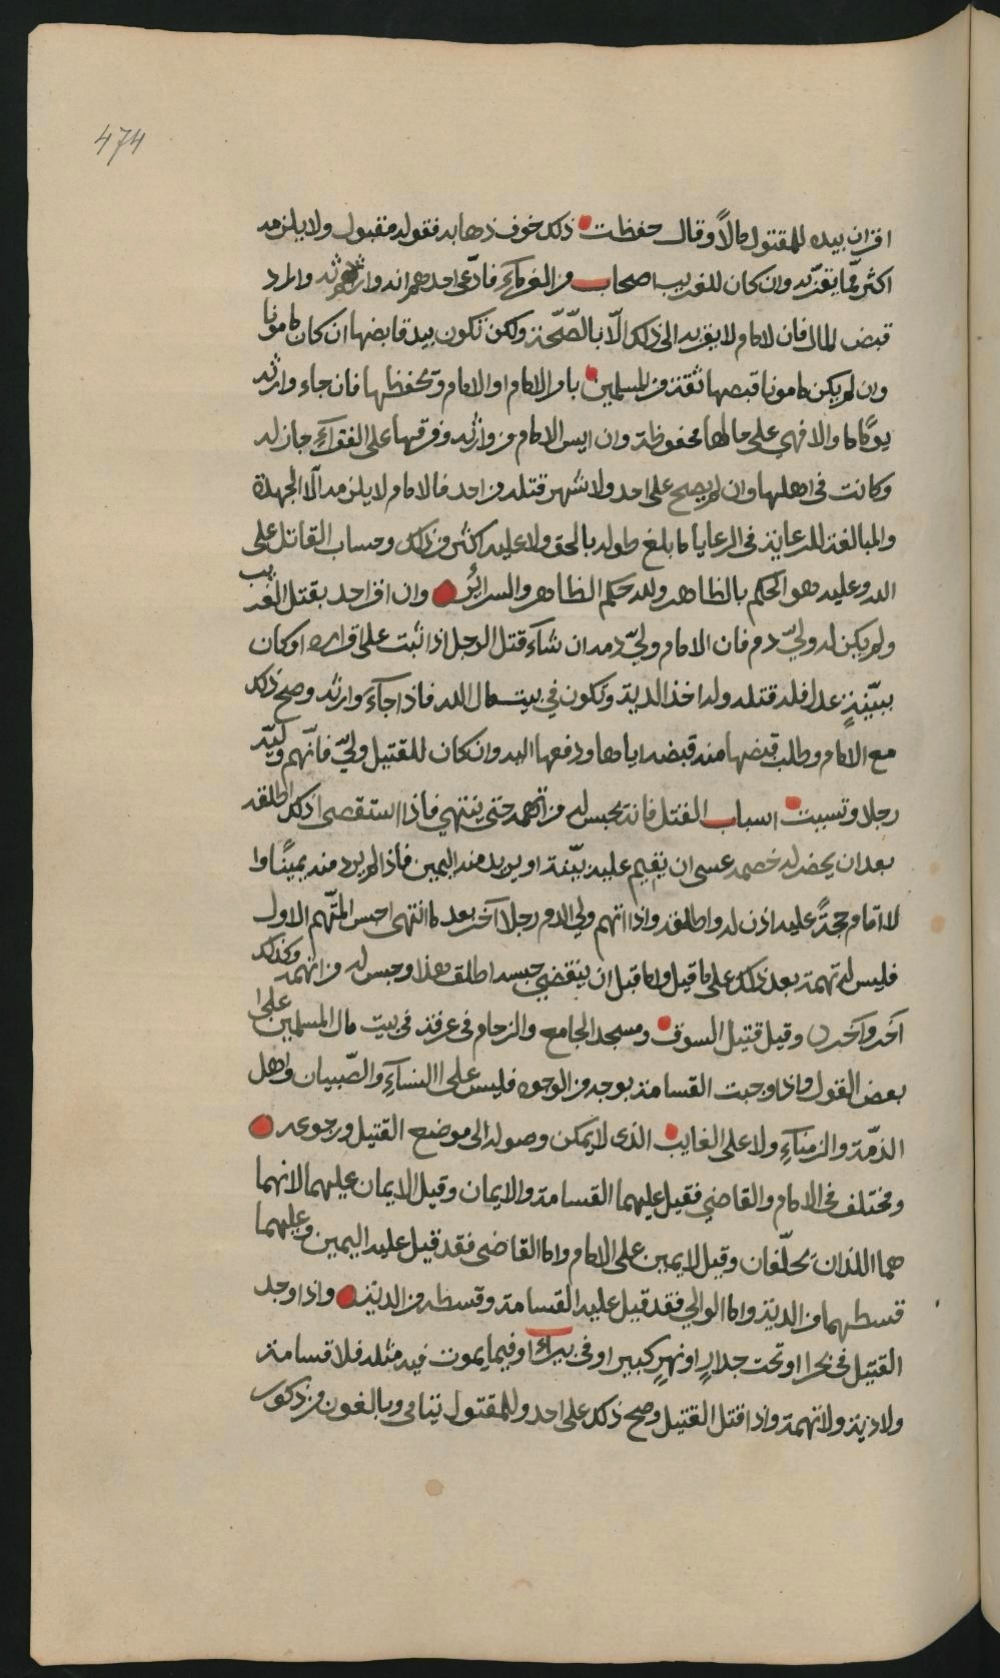 474
اقر ان بيده للمقتول مالاً وقال حفظت ذلك خوف ذهابه فقوله مقبول ولا يلزمه
اكثر مما يقر به وان كان للغريب اصحاب من الغرماء فادعى احدهم انه وارثه واراد
قبض المال فان الامام لا يقربه الى ذلك الّا بالصّحّة ولكن تكون بيد قابضها ان كان مامونا
وان لم يكن مامونا قبضها ثقة من المسلمين بامر الامام او الامام ويحفظها فان جاء وارثه
يومًا ما والا فهي على حالها محفوظة وان ايس الامام من وارثه وفرقها على الفقراء جاز له
وكانت في اهلها وان لم يصح على احد ولا شهر قتله من احد فالامام لا يلزمه الّا الجهدة
والمبالغة للرعاية في الرعايا ما بلغ طوله بالحق ولا عليه اكثر من ذلك وحساب القاتل على
الله وعليه هو الحكم بالظاهر ولله حكم الظاهر والسرائر وان اقر احد بقتل الغريب
ولم يكن له وليّ دم فان الامام وليّ دمه ان شآء قتل الرجل اذا ثبت على اقراره او كان
ببيّنةٍ عدل فله قتله وله اخذ الدية وتكون في بيت مال الله فاذا جآء وارثه وصح ذلك
مع الامام وطلب قبضها منه قبضه اياها ودفعها اليه وان كان للقتيل وليّ فاتّهم وليّه
رجلا وتسببت اسباب القتل فانه يحبس له من اتهمه حتى ينتهي فاذا استقصى اذلك اطلقه
بعد ان يحضر له خصمه عسى ان يقيم عليه بيّنة او يريد منه اليمين فاذا لم يرد منه يمينًا وا
لا اقام حجةً عليه اذن له واطلقه واذا اتهم ولي الدم رجلا آخر بعد ما انتهى احبس المتّهم الاول
فليس له تهمة بعد ذلك على ما قيل واما قبل ان ينقضي حبسه اطلق هذا وحبس له من اتهمه وكذلك
آخر وآخرن وقيل قتيل السوق ومسجد الجامع والزحام في عرفة في بيت مال المسلمين على
بعض القول واذا وجبت القسامة بوجه من الوجوه فليس على النسآء والصّبيان واهل
الذمّة والزمنآء ولا على الغايب الذى لا يمكن وصوله الى موضع القتيل ورجوعه
ومختلف في الامام والقاضي فقيل عليهما القسامة والايمان وقيل الايمان عليهما لانهما
هما اللذان يحلّفان وقيل لا يمين على الامام واما القاضي فقد قيل عليه اليمين وعليهما
قسطهما من الدية واما الوالي فقد قيل عليه القسامة وقسطه من الدية واذا وجد
القتيل في بحر او تحت جدارٍ او نهرٍ كبير او في بيراء او فيما يموت فيه مثله فلا قسامة
ولا دية ولا تهمة واذا قتل القتيل وصح ذلك على احد وللمقتول يتامى وبالغون من ذكور